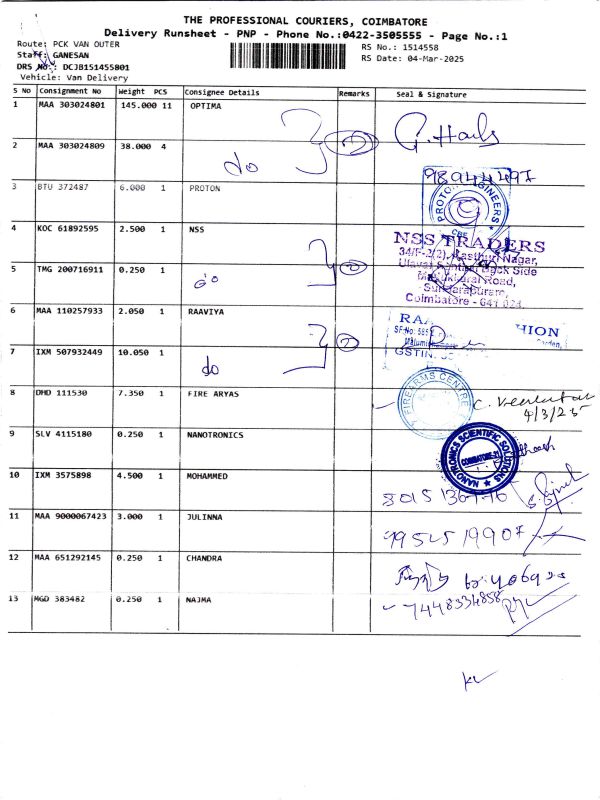 THE PROFESSIONAL COURIERS, COIMBATORE
Delivery Runsheet - PNP - Phone No.:0422-3505555 - Page No.:1
Route: PCK VAN OUTER
RS No.: 1514558
Staff: GANESAN
RS Date: 04-Mar-2025
DRS No.: DCJB151455801
Vehicle: Van Delivery
S No Consignment No Weight PCS Consignee Details Remarks Seal & Signature
1 MAA 303024801 145.000 11 OPTIMA
2 MAA 303024809 38.000 4
do
3 BTU 372487 6.000 1 PROTON
PROTON ENGINEERS
CBE
4 KOC 61892595 2.500 1 NSS
NSS TRADERS
34/F-2(2), Kasthuri Nagar,
Back Side
Road,
Sundarapuram,
Coimbatore - 641 024.
5 TMG 200716911 0.250 1
do
6 MAA 110257933 2.050 1 RAAVIYA
7 IXM 507932449 10.050 1
do
GSTIN
8 DHD 111530 7.350 1 FIRE ARYAS
FIREARMS CENTRE
4/3/25
9 SLV 4115180 0.250 1 NANOTRONICS
NANOTRONICS SCIENTIFIC SOLUTIONS
COIMBATORE-21
10 IXM 3575898 4.500 1 MOHAMMED
11 MAA 9000067423 3.000 1 JULINNA
12 MAA 651292145 0.250 1 CHANDRA
13 MGD 383482 0.250 1 NAJMA
7448334858